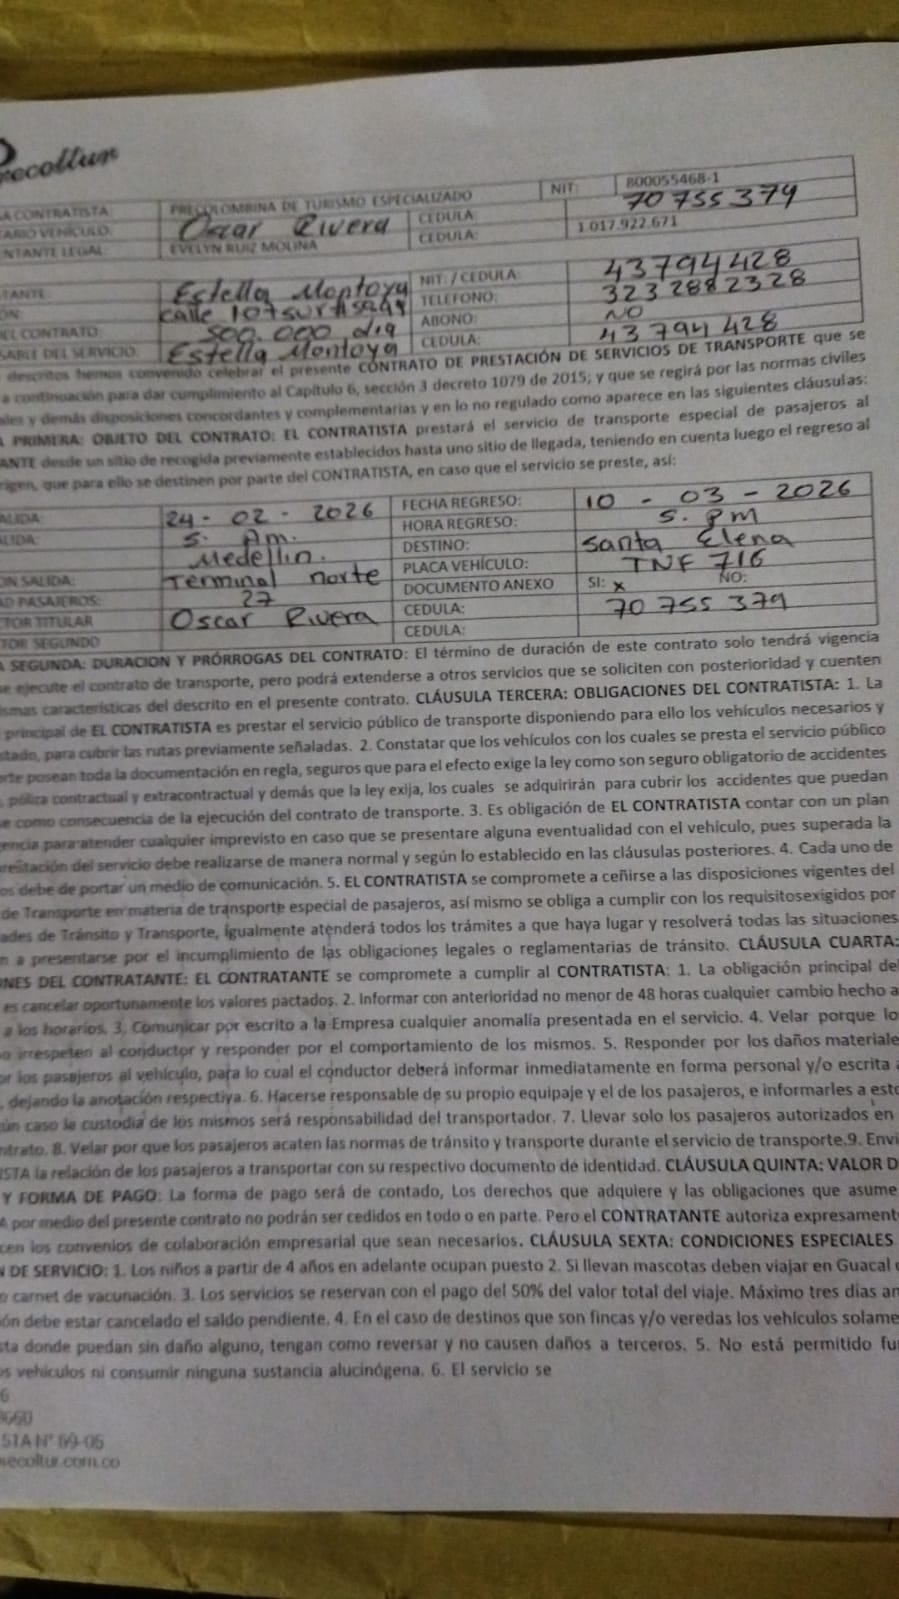 recoltur
A CONTRATISTA: PRECOLOMBINA DE TURISMO ESPECIALIZADO NIT: 800055468-1
TARIO VEHÍCULO: Oscar Rivera CEDULA: 70 755 379
NTANTE LEGAL: EVELYN RUIZ MOLINA CEDULA: 1.017.922.671
TANTE: Estella Montoya NIT: / CEDULA: 43794428
ÓN: calle 107 sur TELEFONO: 323 2882328
EL CONTRATO: 500.000 dia ABONO: NO
SABLE DEL SERVICIO: Estella Montoya CEDULA: 43 794 428
descritos hemos convenido celebrar el presente CONTRATO DE PRESTACIÓN DE SERVICIOS DE TRANSPORTE que se
a continuación para dar cumplimiento al Capítulo 6, sección 3 decreto 1079 de 2015; y que se regirá por las normas civiles
ales y demás disposiciones concordantes y complementarias y en lo no regulado como aparece en las siguientes cláusulas:
A PRIMERA: OBJETO DEL CONTRATO: EL CONTRATISTA prestará el servicio de transporte especial de pasajeros al
ANTE desde un sitio de recogida previamente establecidos hasta uno sitio de llegada, teniendo en cuenta luego el regreso al
rigen, que para ello se destinen por parte del CONTRATISTA, en caso que el servicio se preste, así:
ALIDA: 24 - 02 - 2026 FECHA REGRESO: 10 - 03 - 2026
LIDA: 5. Am. HORA REGRESO: 5. PM
Medellin. DESTINO: Santa Elena
ÓN SALIDA: Terminal norte PLACA VEHÍCULO: TNF 716
AD PASAJEROS: 27 DOCUMENTO ANEXO SI: x NO:
CTOR TITULAR Oscar Rivera CEDULA: 70 755 379
TOR SEGUNDO CEDULA:
A SEGUNDA: DURACION Y PRÓRROGAS DEL CONTRATO: El término de duración de este contrato solo tendrá vigencia
se ejecute el contrato de transporte, pero podrá extenderse a otros servicios que se soliciten con posterioridad y cuenten
ismas características del descrito en el presente contrato. CLÁUSULA TERCERA: OBLIGACIONES DEL CONTRATISTA: 1. La
principal de EL CONTRATISTA es prestar el servicio público de transporte disponiendo para ello los vehículos necesarios y
stado, para cubrir las rutas previamente señaladas. 2. Constatar que los vehículos con los cuales se presta el servicio público
orte posean toda la documentación en regla, seguros que para el efecto exige la ley como son seguro obligatorio de accidentes
, póliza contractual y extracontractual y demás que la ley exija, los cuales se adquirirán para cubrir los accidentes que puedan
se como consecuencia de la ejecución del contrato de transporte. 3. Es obligación de EL CONTRATISTA contar con un plan
gencia para atender cualquier imprevisto en caso que se presentare alguna eventualidad con el vehículo, pues superada la
prestación del servicio debe realizarse de manera normal y según lo establecido en las cláusulas posteriores. 4. Cada uno de
os debe de portar un medio de comunicación. 5. EL CONTRATISTA se compromete a ceñirse a las disposiciones vigentes del
de Transporte en materia de transporte especial de pasajeros, así mismo se obliga a cumplir con los requisitosexigidos por
ades de Tránsito y Transporte, igualmente atenderá todos los trámites a que haya lugar y resolverá todas las situaciones
n a presentarse por el incumplimiento de las obligaciones legales o reglamentarias de tránsito. CLÁUSULA CUARTA:
ONES DEL CONTRATANTE: EL CONTRATANTE se compromete a cumplir al CONTRATISTA: 1. La obligación principal del
es cancelar oportunamente los valores pactados. 2. Informar con anterioridad no menor de 48 horas cualquier cambio hecho a
a los horarios. 3. Comunicar por escrito a la Empresa cualquier anomalía presentada en el servicio. 4. Velar porque lo
o irrespeten al conductor y responder por el comportamiento de los mismos. 5. Responder por los daños materiale
or los pasajeros al vehículo, para lo cual el conductor deberá informar inmediatamente en forma personal y/o escrita a
, dejando la anotación respectiva. 6. Hacerse responsable de su propio equipaje y el de los pasajeros, e informarles a esto
ún caso la custodia de los mismos será responsabilidad del transportador. 7. Llevar solo los pasajeros autorizados en
ntrato. 8. Velar por que los pasajeros acaten las normas de tránsito y transporte durante el servicio de transporte.9. Envi
ISTA la relación de los pasajeros a transportar con su respectivo documento de identidad. CLÁUSULA QUINTA: VALOR D
Y FORMA DE PAGO: La forma de pago será de contado, Los derechos que adquiere y las obligaciones que asume
A por medio del presente contrato no podrán ser cedidos en todo o en parte. Pero el CONTRATANTE autoriza expresament
cen los convenios de colaboración empresarial que sean necesarios. CLÁUSULA SEXTA: CONDICIONES ESPECIALES
N DE SERVICIO: 1. Los niños a partir de 4 años en adelante ocupan puesto 2. Si llevan mascotas deben viajar en Guacal
o carnet de vacunación. 3. Los servicios se reservan con el pago del 50% del valor total del viaje. Máximo tres días an
ión debe estar cancelado el saldo pendiente. 4. En el caso de destinos que son fincas y/o veredas los vehículos solame
sta donde puedan sin daño alguno, tengan como reversar y no causen daños a terceros. 5. No está permitido fu
os vehículos ni consumir ninguna sustancia alucinógena. 6. El servicio se
6
8660
51A N° 69-05
recoltur.com.co